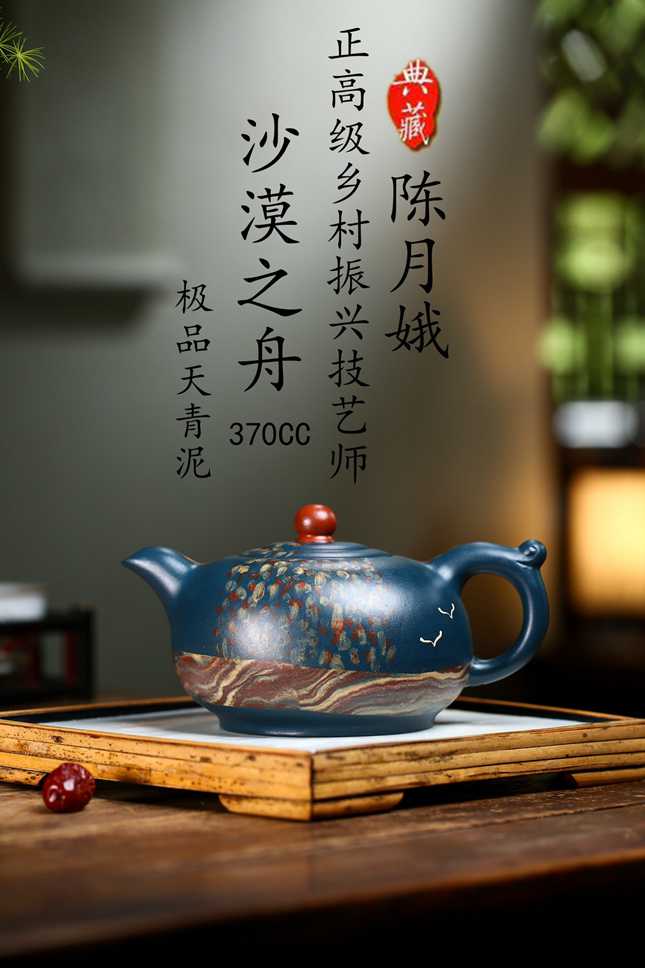 典藏
陈月娥
正高级乡村振兴技艺师
沙漠之舟
370CC
极品天青泥